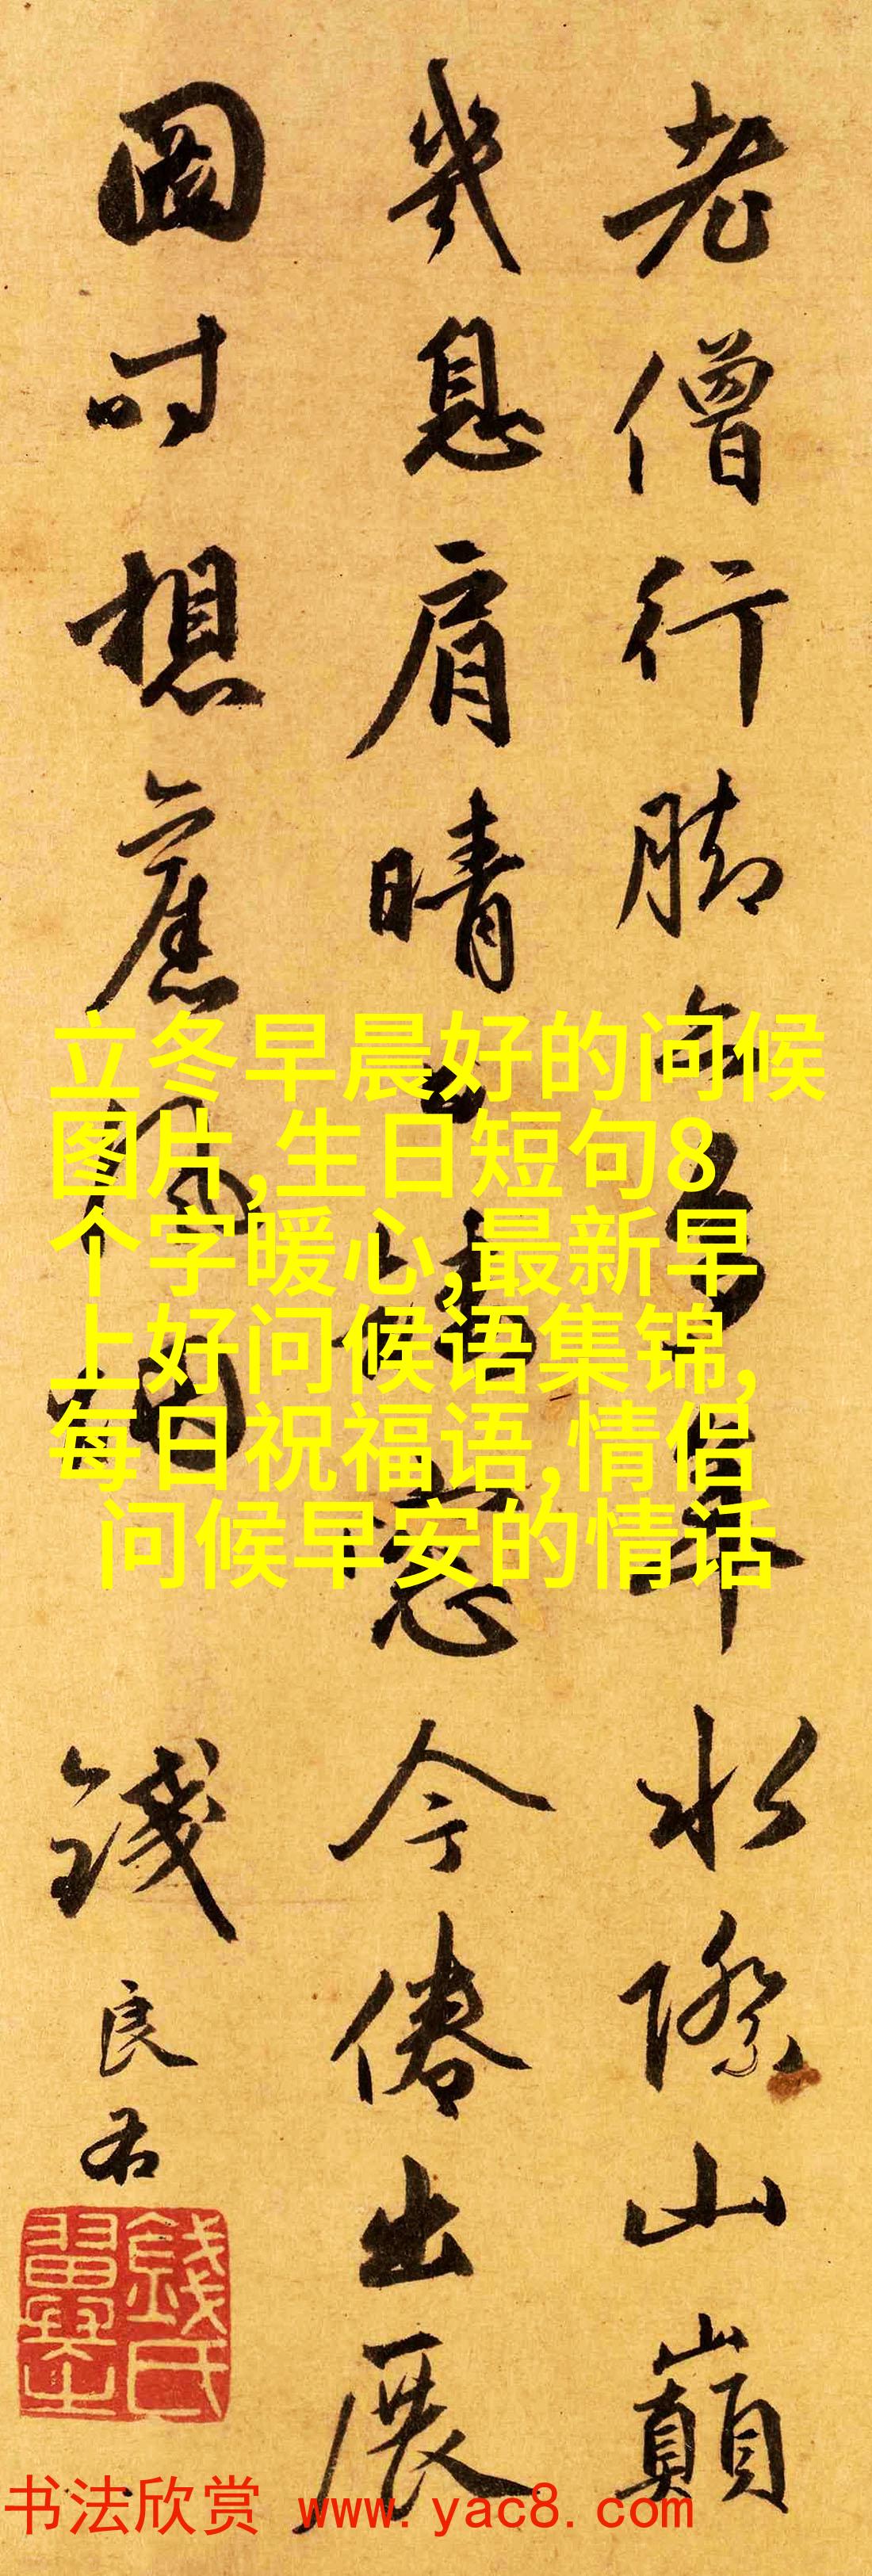 老僧行脚
水際山巔
幾息肩晴
今倦出展
圖時想舊
錢良右
錢氏
立冬早晨好的问候
图片,生日短句8
个字暖心,最新早
上好问候语集锦,
每日祝福语,情侣
问候早安的情话
书法欣赏 www.yac8.com